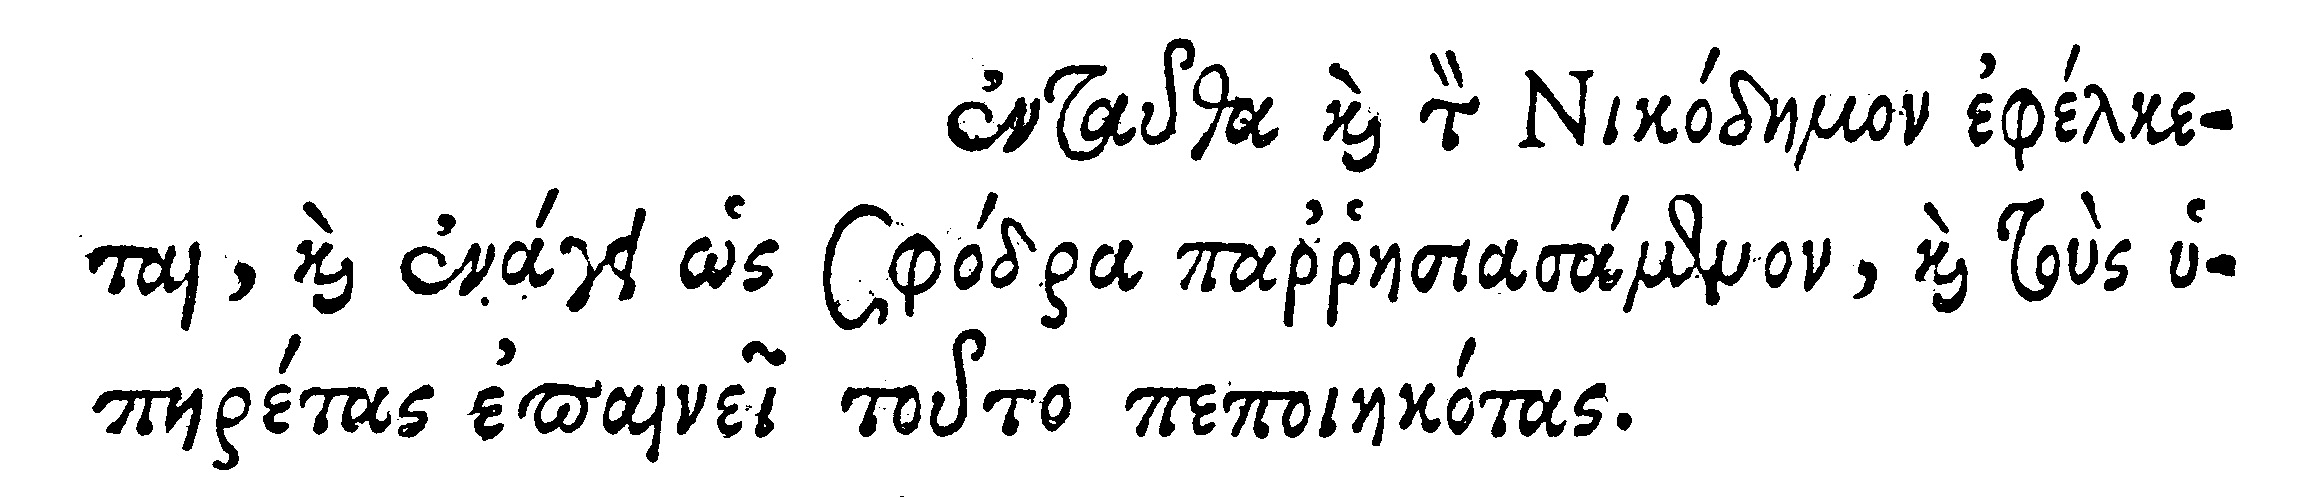 ἐνταῦθα καὶ τὸν Νικόδημον ἐφέλκε-
ται, καὶ ἐνάγει ὡς σφόδρα παῤῥησιασάμενον, καὶ τοὺς ὑ-
πηρέτας ἐπαινεῖ τοῦτο πεποιηκότας.